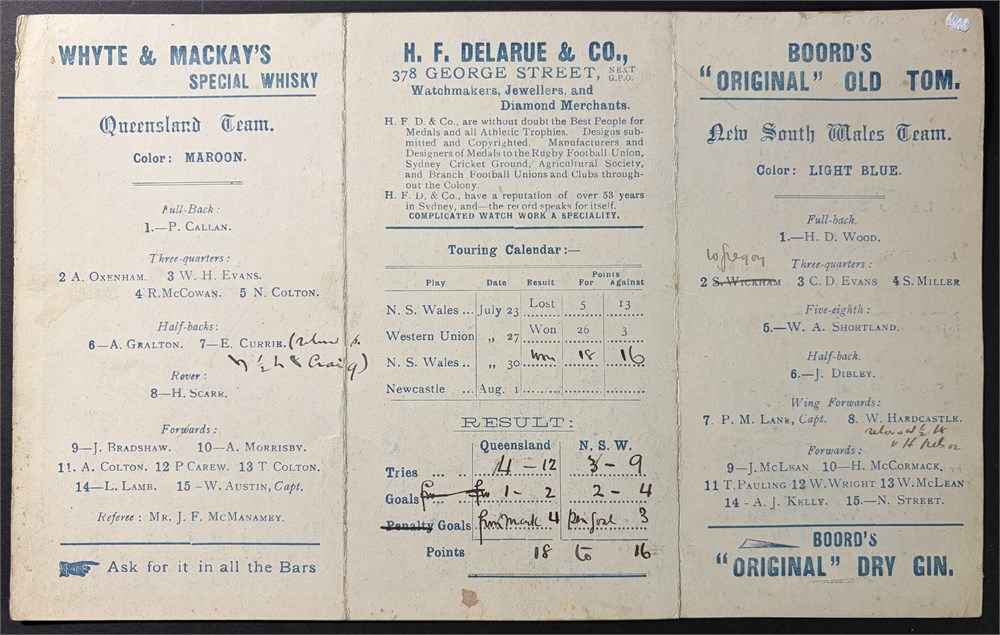 WHYTE & MACKAY'S
SPECIAL WHISKY
Queensland Team.
Color: MAROON.
Full-Back:
1.—P. CALLAN.
Three-quarters:
2 A. OXENHAM. 3 W. H. EVANS.
4 R. McCOWAN. 5 N. COLTON.
Half-backs:
6—A. GRALTON. 7—E. CURRIE.
Craig)
Rover:
8—H. SCARR.
Forwards:
9—J. BRADSHAW. 10—A. MORRISBY.
11. A. COLTON. 12 P CAREW. 13 T COLTON.
14—L. LAMB. 15 -W. AUSTIN, Capt.
Referee: MR. J. F. McMANAMEY.
Ask for it in all the Bars
H. F. DELARUE & CO.,
378 GEORGE STREET, NEXT G.P.O.
Watchmakers, Jewellers, and
Diamond Merchants.
H. F. D. & Co., are without doubt the Best People for
Medals and all Athletic Trophies. Designs sub-
mitted and Copyrighted. Manufacturers and
Designers of Medals to the Rugby Football Union,
Sydney Cricket Ground, Agricultural Society,
and Branch Football Unions and Clubs through-
out the Colony.
H. F. D, & Co., have a reputation of over 53 years
in Sydney, and—the record speaks for itself.
COMPLICATED WATCH WORK A SPECIALITY.
Touring Calendar:—
Play Date Result Points For Against
N. S. Wales ... July 23 Lost 5 13
Western Union „ 27 Won 26 3
N. S. Wales .. „ 30 Won 18 16
Newcastle ... Aug. 1
RESULT:
Queensland N. S. W.
Tries ... ... 4 - 12 3 - 9
Goals 1 - 2 2 - 4
Penalty Goals from mark 4 Pen goal 3
Points 18 to 16
BOORD'S
"ORIGINAL" OLD TOM.
New South Wales Team.
Color: LIGHT BLUE.
Full-back.
1.—H. D. WOOD.
Three-quarters:
2 S. WICKHAM 3 C. D. EVANS 4 S. MILLER
Five-eighth:
5.—W. A. SHORTLAND.
Half-back.
6.—J. DIBLEY.
Wing Forwards:
7. P. M. LANE, Capt. 8. W. HARDCASTLE.
Forwards:
9—J. McLEAN 10—H. McCORMACK,
11 T. PAULING 12 W. WRIGHT 13 W. McLEAN
14 - A. J. KELLY. 15.—N. STREET.
BOORD'S
"ORIGINAL" DRY GIN.